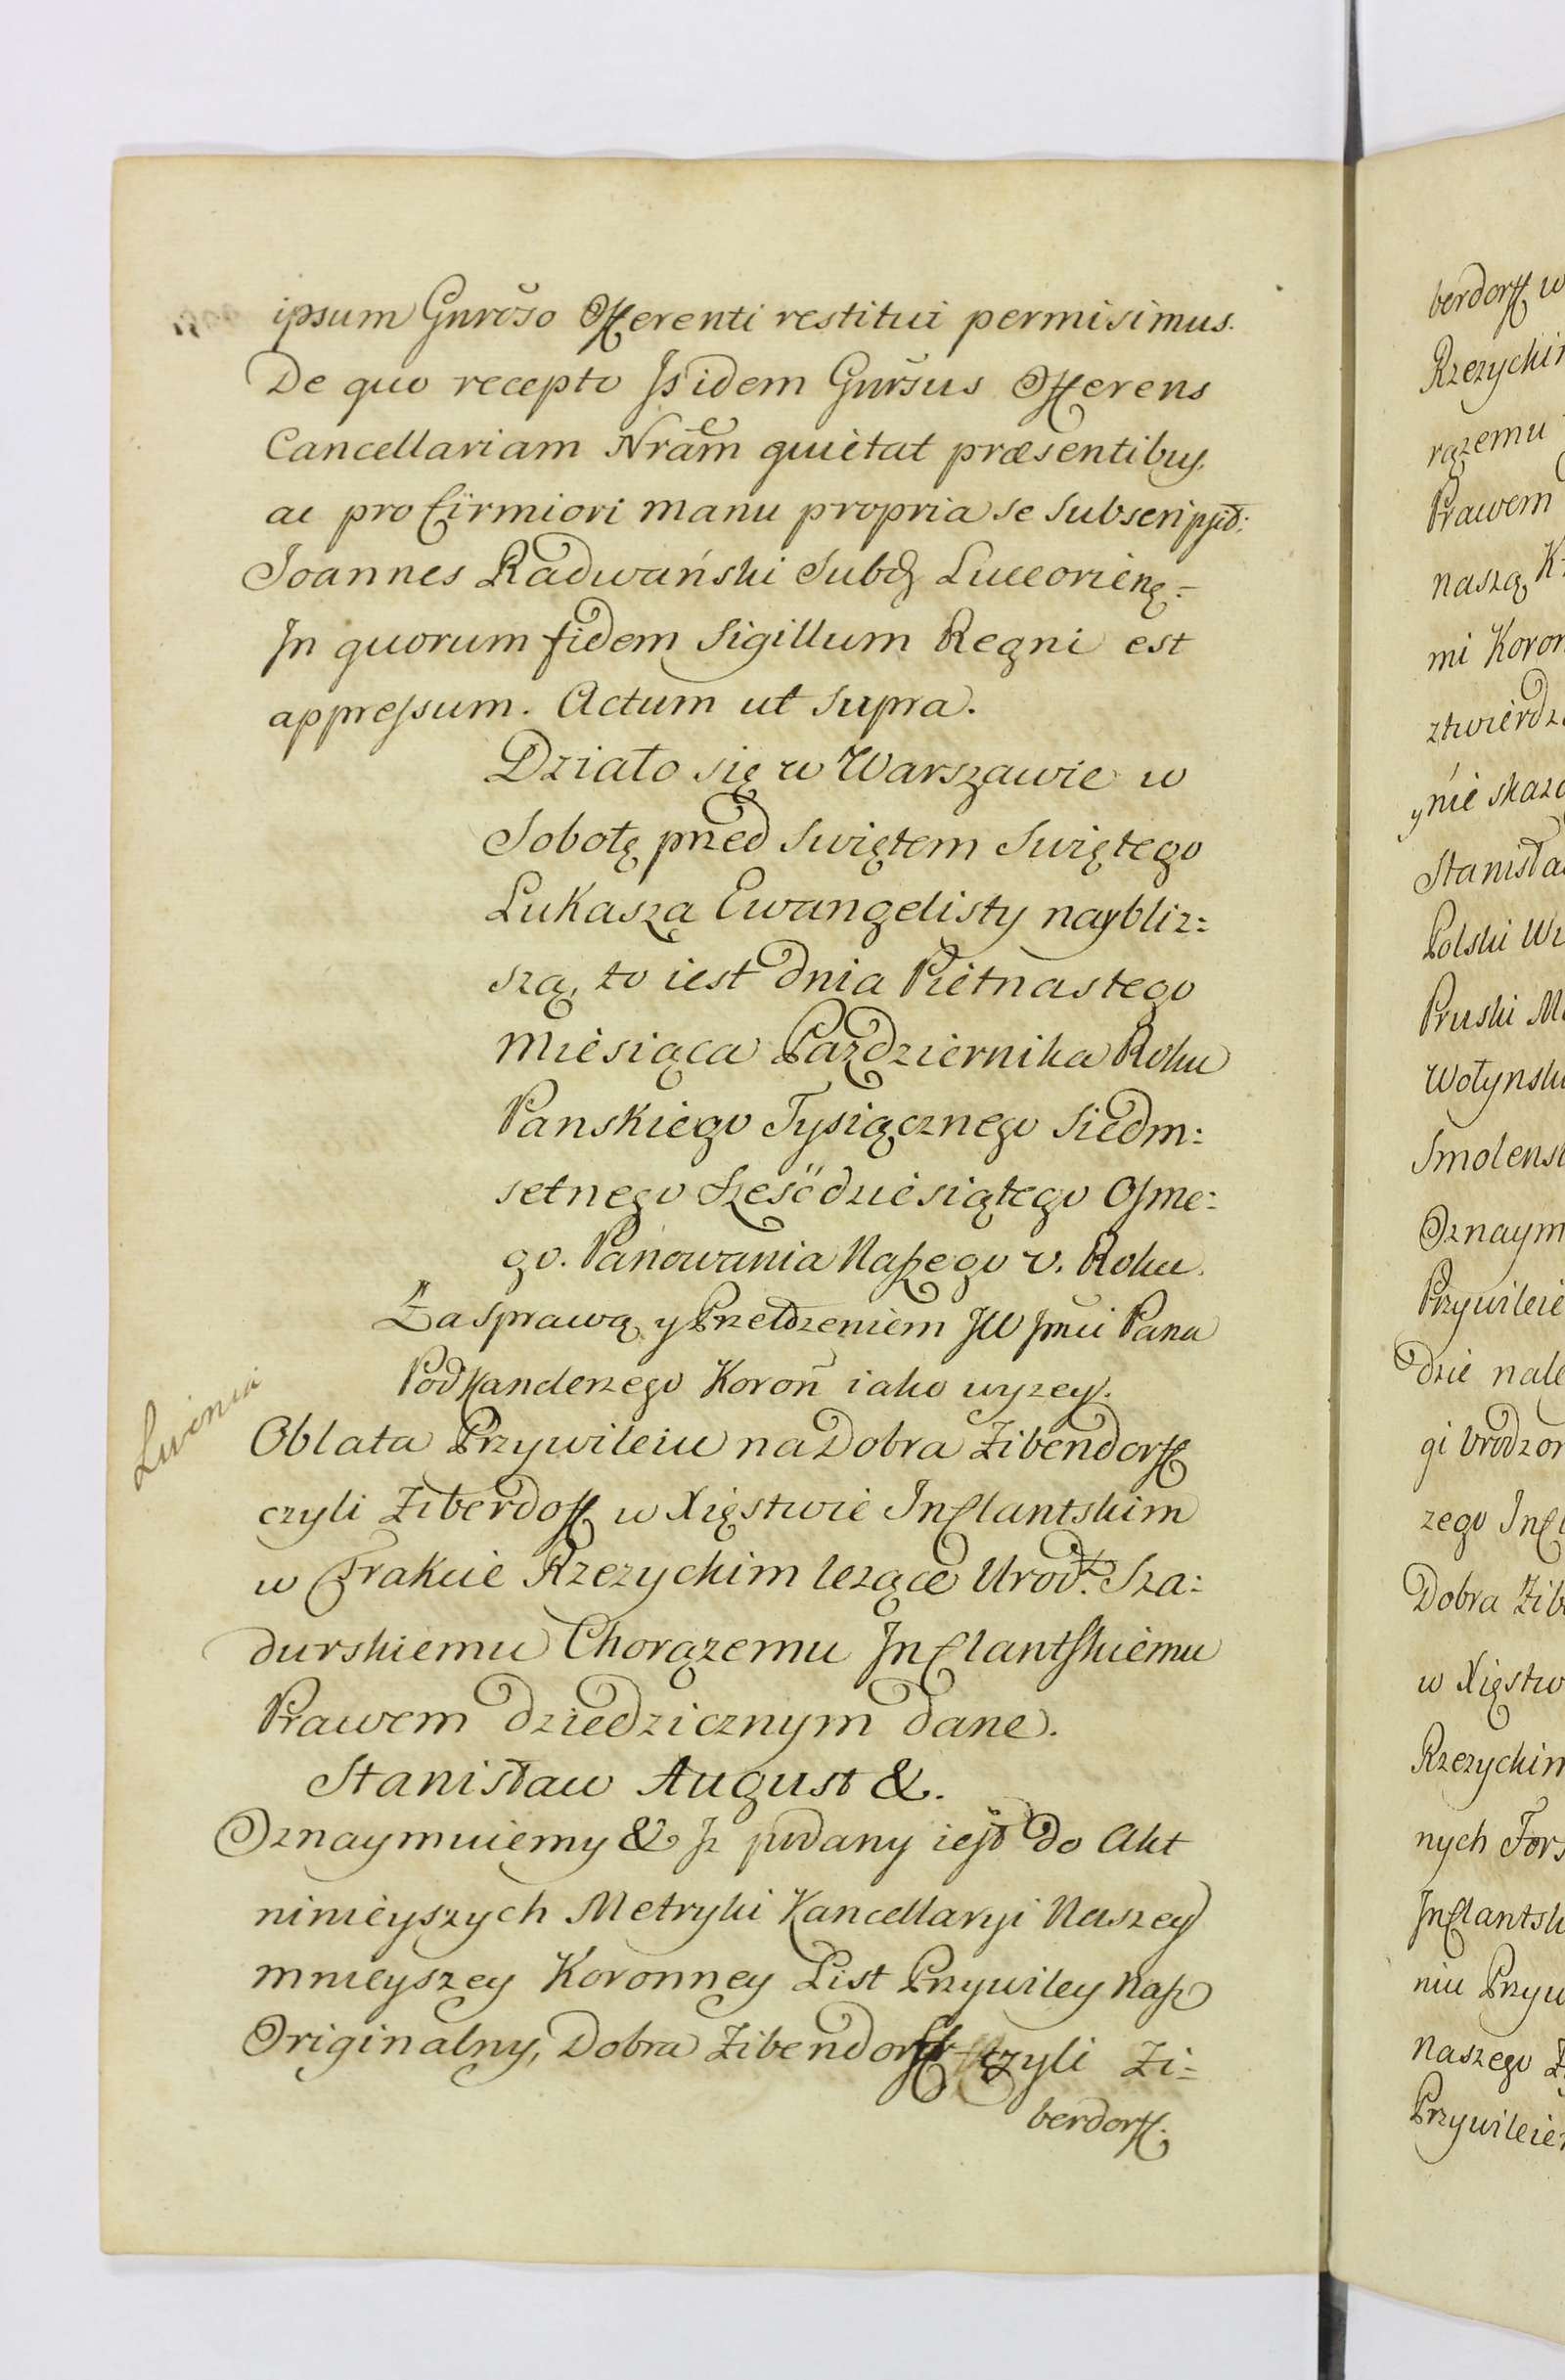 ipsum Gnroso Offerenti restitui permisimus.
De quo recepto Isidem Gnrsus Offerens
Cancellariam Nram quietat præsentibus
ac pro firmiori manu propria se subscripsit:
Joannes Radwański Subd Luceorien.=
In quorum fidem Sigillum Regni est
appressum. Actum ut supra.
Działo się w Warszawie w
Sobotę przed Swiętem Swiętego
Lukasza Ewangelisty naybliz=
szą, to iest dnia Pietnastego
Miesiąca Pazdziernika Roku
Panskiego Tysiącznego Siedm=
setnego Sześćdziesiątego Osme=
go. Panowania Naszego v. Roku.
Za sprawą y Przełozeniem JW Jmci Pana
Podkanclerzego Koroñ iako wyzey.
Livonia
Oblata Przywileiu na Dobra Zibendorff
czyli Ziberdoff w Xięstwie Inflantskim
w Trakcie Rzezychim lezące Urodz. Sza=
durskiemu Chorązemu Inflantskiemu
Prawem dziedzicznym dane.
Stanisław August &.
Oznaymuiemy & Iz podany iest do Akt
ninieyszych Metryki Kancellaryi Naszey
mnieyszey Koronney List Przywiley Nasz
Originalny, Dobra Zibendorff czyli Zi=
berdorff.
berdorff w
Rzezychim
rązemu
Prawem
naszą
mi Koron
ztwierdz
y nie skaz
Stanisła
Polski
Pruski
Wołynsk
Smolensk
Oznaym
Przywileie
dzie nale
gi Urodzon
zego Infl
Dobra Zib
w Xięstw
Rzezychim
nych
Inflantsk
niu Przyw
naszego
Przywileie